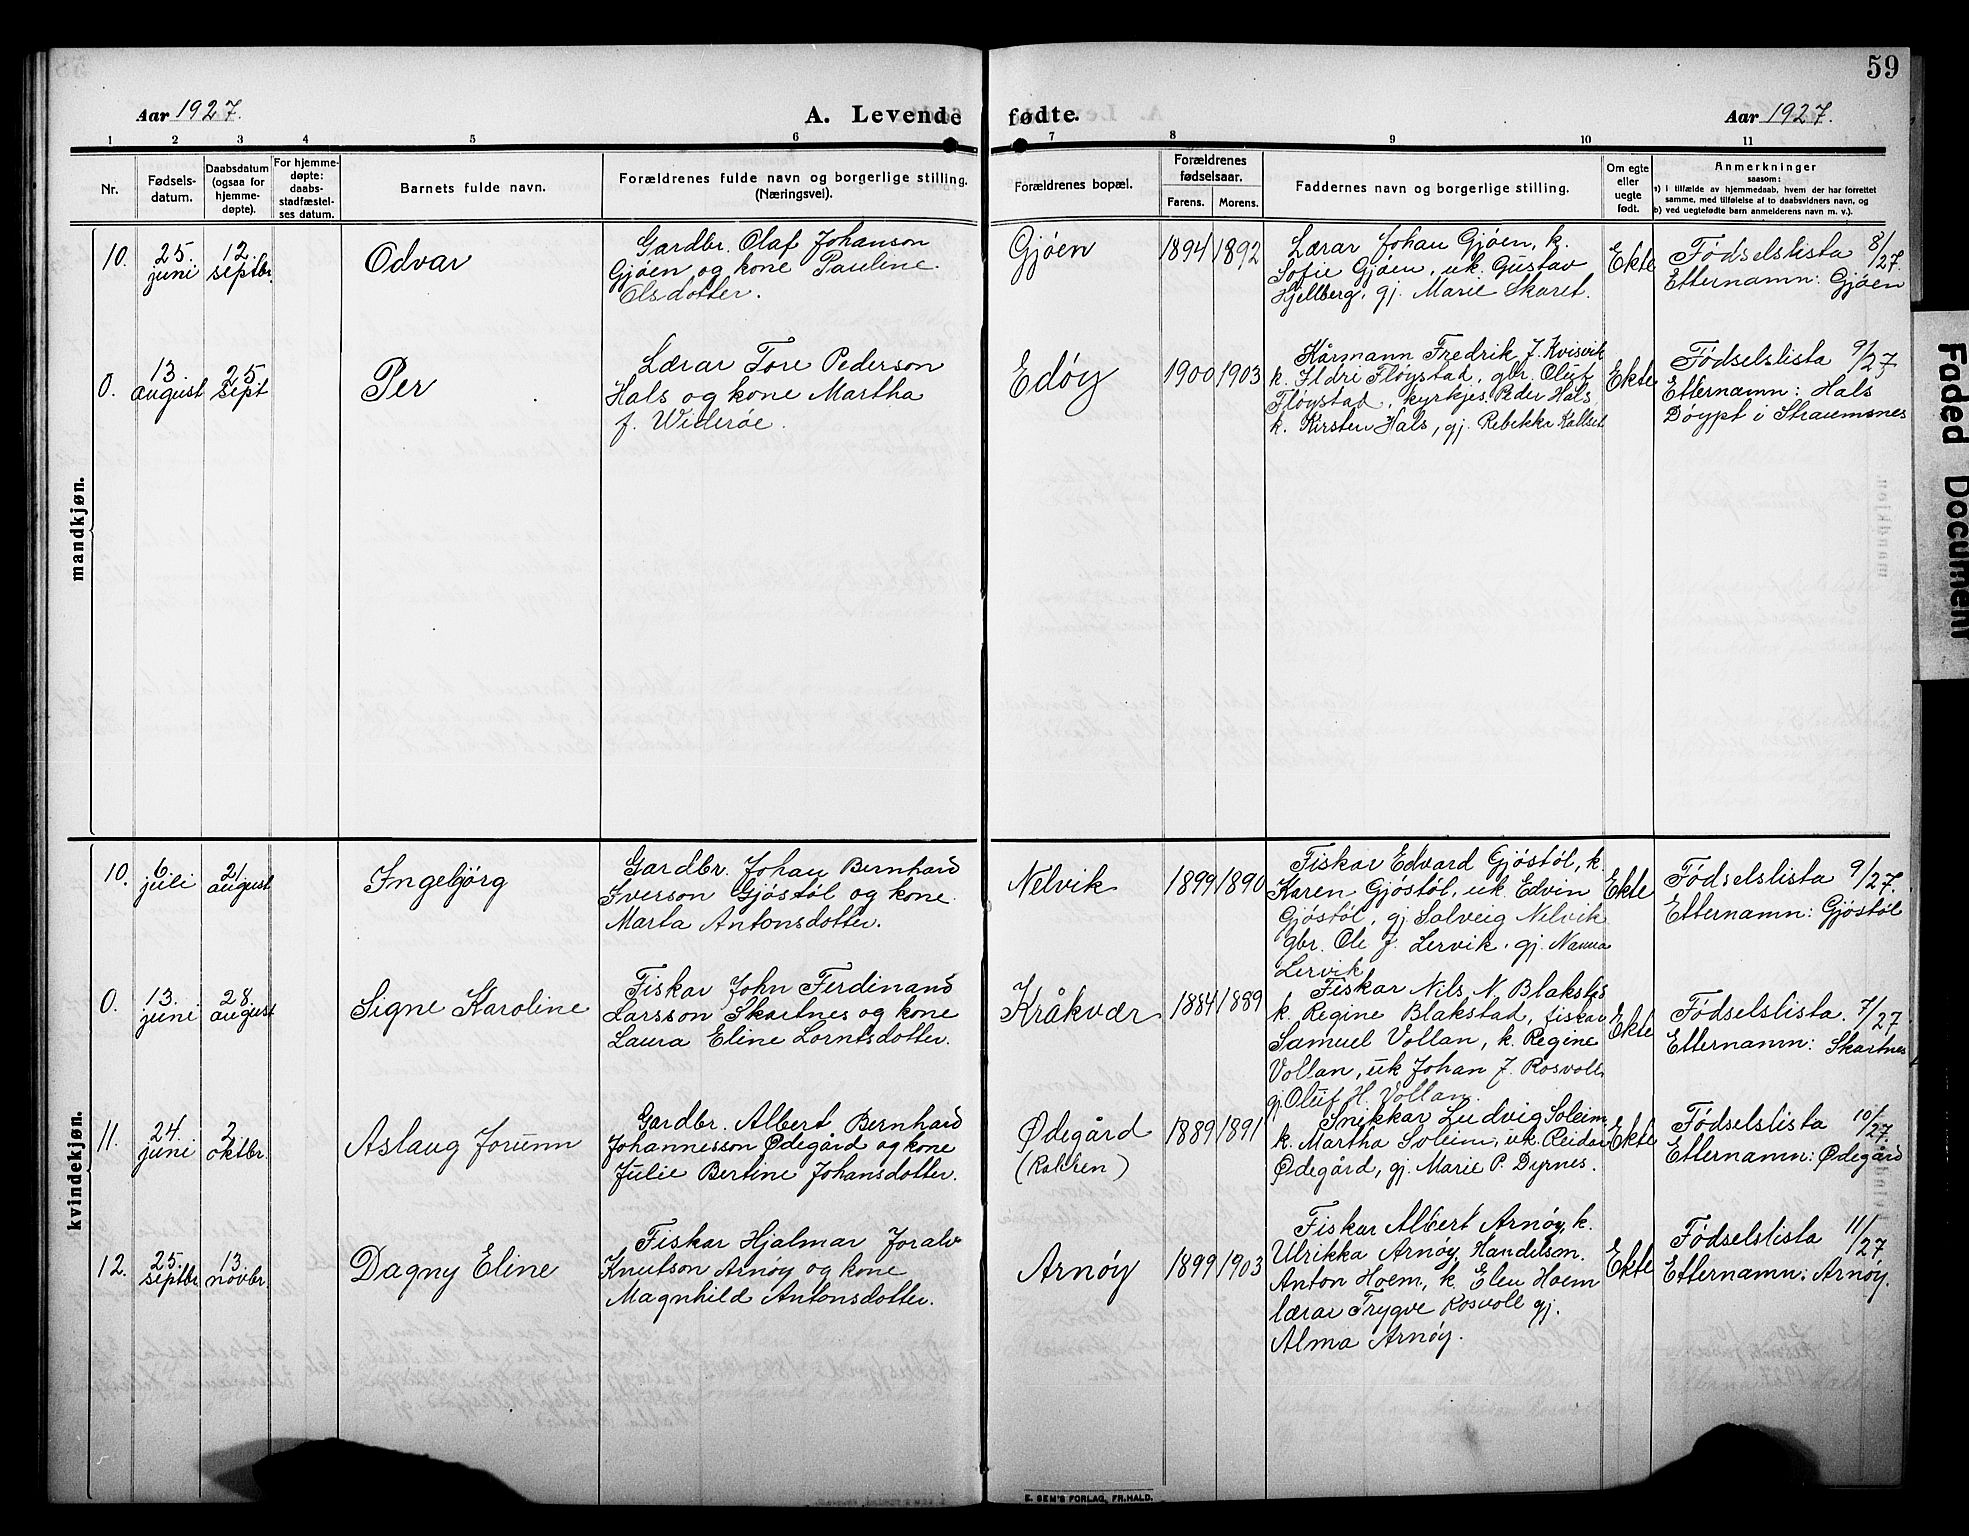 59
Aar 1927.
A. Levende fødte.
Aar 1927.
1 2 3 4 5 6 7 8 9 10 11
Nr.
Fødsels-
datum.
Daabsdatum
(ogsaa for
hjemme-
døpte).
For hjemme-
døpte:
daabs-
stadfæstel-
ses datum.
Barnets fulde navn.
Forældrenes fulde navn og borgerlige stilling.
(Næringsvei).
Forældrenes bopæl.
Forældrenes
fødselsaar.
Farens. Morens.
Faddernes navn og borgerlige stilling.
Om egte
eller
uegte
født.
Anmerkninger
saasom:
a) i tilfælde av hjemmedaab, hvem der har forrettet
samme, med tilføielse af to daabsvidners navn, og
b) ved uegtefødte barn anmelderens navn m. v.).
mandkjøn.
10.
25.
juni
12.
septbr.
Odvar
Gardbr. Olaf Johanson
Gjøen og kone Pauline
Olsdotter.
Gjøen
1894 1892
Lærar Johan Gjøen, k.
Sofie Gjøen, uk. Gustav
Hjellberg, gj. Marie Skaret.
Ekte
Fødselslista 8/27
Etternamn: Gjøen
0.
13
august
25
sept
Per
Lærar Tore Pederson
Hals og kone Martha
f. Widerøe.
Edøy
1900 1903
Kårmann Fredrik J. Kvisvik
k. Ildri Fløystad, gbr. Oluf
Fløystad, kyrkjes. Peder Hals,
k. Kirsten Hals, gj. Rebekka Kallset
Ekte
Fødselslista 9/27
Etternamn: Hals
Døypt i Straumsnes
kvindekjøn.
10.
6
juli
21.
august
Ingebjørg
Gardbr. Johan Bernhard
Iverson Gjøstøl og kone
Marta Antonsdotter.
Nelvik
1899 1890
Fiskar Edvard Gjøstøl, k.
Karen Gjøstøl, uk. Edvin
Gjøstøl, gj Solveig Nelvik
gbr. Ole J. Lervik, gj. Nanna
Lervik
Ekte
Fødselslista 9/27.
Etternamn: Gjøstøl
0.
13.
juni
28.
august
Signe Karoline
Fiskar John Ferdinand
Larsson Skartnes og kone
Laura Eline Lorntsdotter.
Kråkvær
1884 1889
Fiskar Nils N. Blakstad
k. Regine Blakstad, fiskar
Samuel Vollan, k. Regine
Vollan, uk Johan J. Rosvoll,
gj Oluf H. Vollan.
Ekte
Fødselslista. 7/27
Etternamn: Skartnes
11.
24.
juni
2.
oktbr.
Aslaug Jorunn
Gardbr. Albert Bernhard
Johannesson Ødegård og kone
Julie Bertine Johansdotter.
Ødegård
(Rokken)
1889 1891
Snikkar Ludvig Soleim,
k. Martha Soleim, uk. Reidar
Ødegård, gj. Marie P. Dyrnes.
Ekte
Fødselslista 10/27.
Etternamn: Ødegård
12.
25.
septbr.
13.
novbr.
Dagny Eline
Fiskar Hjalmar Joralv
Knutson Arnøy og kone
Magnhild Antonsdotter.
Arnøy
1899 1903
Fiskar Albert Arnøy, k.
Ulrikka Arnøy, Handelsm.
Anton Hoem, k. Elen Hoem
lærar Trygve Rosvoll gj.
Alma Arnøy.
Ekte
Fødselslista 11/27
Etternamn: Arnøy.
E. SEM'S FORLAG, FR.HALD.
Faded Document